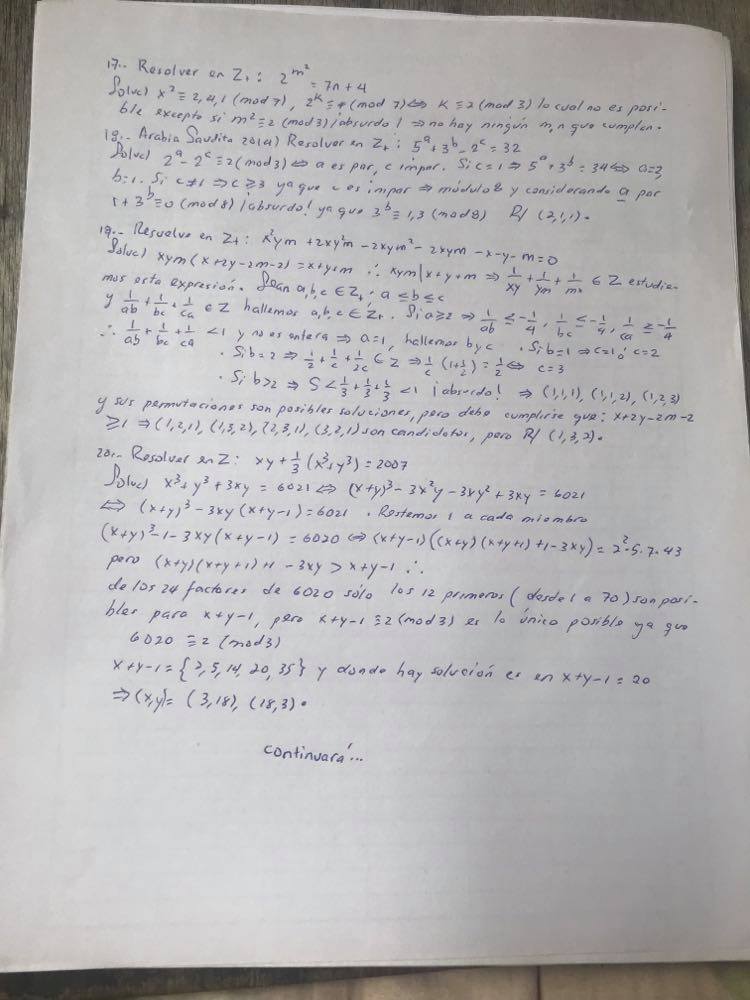 17.- Resolver en Z₊: 2^m² = 7n+4
Soluc) x² ≡ 2,4,1 (mod 7), 2^k ≡ 4 (mod 7) ⟺ k ≡ 2 (mod 3) lo cual no es posi-
ble excepto si m² ≡ 2 (mod 3) ¡absurdo! ⇒ no hay ningún m,n que cumplan.
18.- Arabia Saudita 2014) Resolver en Z₊: 5^a + 3^b - 2^c = 32
Soluc) 2^a - 2^c ≡ 2 (mod 3) ⟺ a es par, c impar. Si c=1 ⇒ 5^a + 3^b = 34 ⟺ a=2,
b=1. Si c≠1 ⇒ c ≥ 3 ya que c es impar ⇒ módulo 8 y considerando a par
1+3^b ≡ 0 (mod 8) ¡absurdo! ya que 3^b ≡ 1,3 (mod 8) R/ (2,1,1).
19.- Resuelve en Z₊: x²ym + 2xy²m - 2xym² - 2xym - x - y - m = 0
Soluc) xym(x+2y-2m-2) = x+y+m ∴ xym | x+y+m ⇒ 1/xy + 1/ym + 1/mx ∈ Z estudie-
mos esta expresión. Sean a,b,c ∈ Z₊; a ≤ b ≤ c
y 1/ab + 1/bc + 1/ca ∈ Z hallemos a,b,c ∈ Z₊. Si a ≥ 2 ⇒ 1/ab ≤ -1/4, 1/bc ≤ -1/4, 1/ca ≥ -1/4
∴ 1/ab + 1/bc + 1/ca < 1 y no es entera ⇒ a=1, hallemos b y c · Si b=1 ⇒ c=1 ó c=2
· Si b=2 ⇒ 1/2 + 1/c + 1/2c ∈ Z ⇒ 1/c (1+1/2) = 1/2 ⟺ c=3
· Si b>2 ⇒ S < 1/3 + 1/3 + 1/3 < 1 ¡absurdo! ⇒ (1,1,1), (1,1,2), (1,2,3)
y sus permutaciones son posibles soluciones, pero debe cumplirse que: x+2y-2m-2
≥ 1 ⇒ (1,2,1), (1,3,2), (2,3,1), (3,2,1) son candidatos, pero R/ (1,3,2).
20.- Resolver en Z: xy + 1/3 (x³+y³) = 2007
Soluc) x³+y³+3xy = 6021 ⟺ (x+y)³ - 3x²y - 3xy² + 3xy = 6021
⟺ (x+y)³ - 3xy(x+y-1) = 6021 . Restemos 1 a cada miembro
(x+y)³ - 1 - 3xy(x+y-1) = 6020 ⟺ (x+y-1)((x+y)(x+y+1)+1-3xy) = 2²·5·7·43
pero (x+y)(x+y+1)+1 - 3xy > x+y-1 ∴
de los 24 factores de 6020 sólo los 12 primeros (desde 1 a 70) son posi-
bles para x+y-1, pero x+y-1 ≡ 2 (mod 3) es lo único posible ya que
6020 ≡ 2 (mod 3)
x+y-1 = {2,5,14,20,35} y donde hay solución es en x+y-1 = 20
⇒ (x,y) = (3,18), (18,3).
continuará...